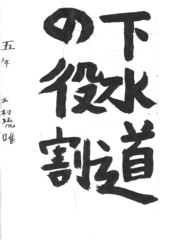 下水道
の役割
五年 大村琉唯